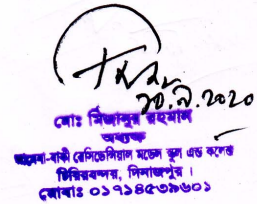 ২০.৯.২০২০
মোঃ মিজানুর রহমান
অধ্যক্ষ
আমেনা-বাকী রেসিডেনসিয়াল মডেল স্কুল এন্ড কলেজ
চিরিরবন্দর, দিনাজপুর।
মোবাঃ ০১৭১৪৫৩৯৬০১